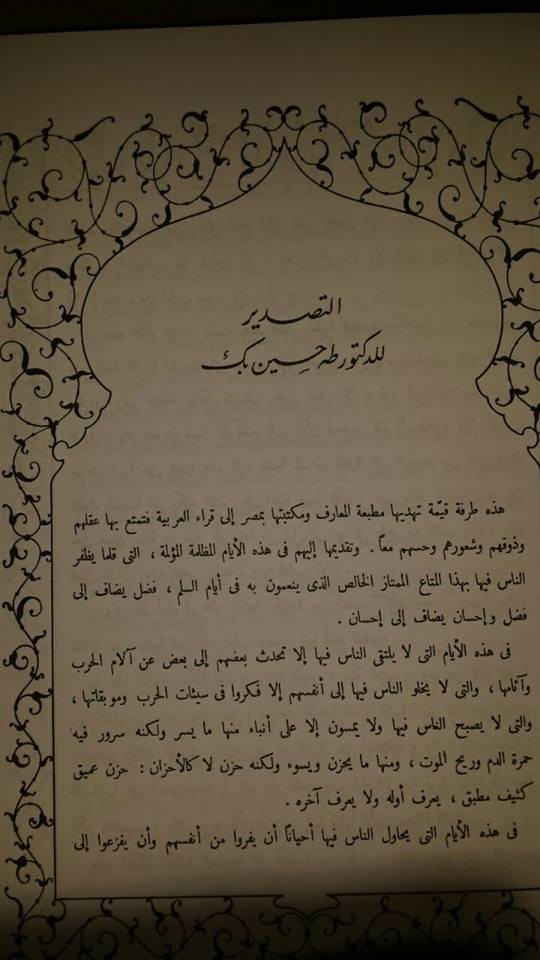 التصدير
للدكتور طه حسين بك
هذه طرفة قيّمة تهديها مطبعة المعارف ومكتبتها بمصر إلى قراء العربية فتمتع بها عقلهم
وذوقهم وشعورهم وحسهم معاً . وتقديمها إليهم فى هذه الأيام المظلمة المؤلمة ، التى قلما يظفر
الناس فيها بهذا المتاع الممتاز الخالص الذى ينعمون به فى أيام السلم ، فضل يضاف إلى
فضل وإحسان يضاف إلى إحسان .
فى هذه الأيام التى لا يلتقى الناس فيها إلا تحدث بعضهم إلى بعض عن آلام الحرب
وآثامها ، والتى لا يخلو الناس فيها إلى أنفسهم إلا فكروا فى سيئات الحرب وموبقاتها ،
والتى لا يصبح الناس فيها ولا يمسون إلا على أنباء منها ما يسر ولكنه سرور فيه
حمرة الدم وريح الموت ، ومنها ما يحزن ويسوء ولكنه حزن لا كالأحزان : حزن عميق
كثيف مطبق ، يعرف أوله ولا يعرف آخره .
فى هذه الأيام التى يحاول الناس فيها أحياناً أن يفروا من أنفسهم وأن يفزعوا إلى